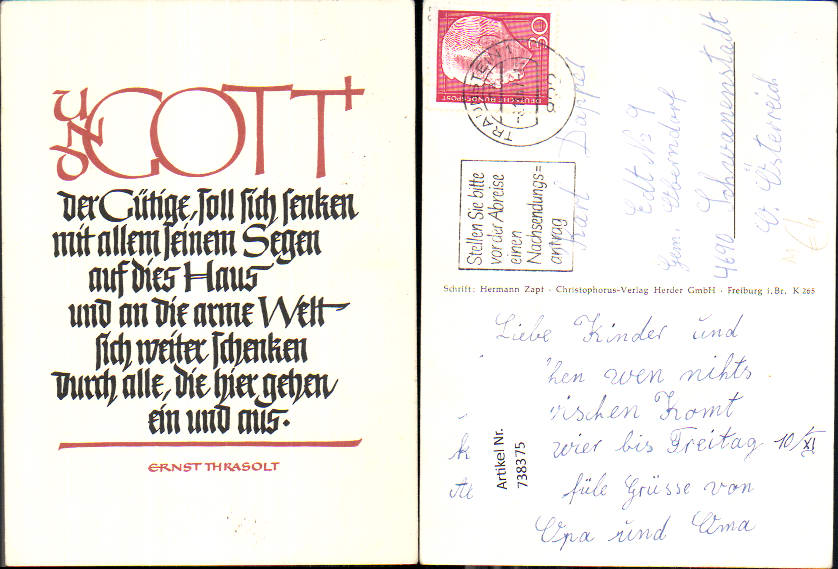 und GOTT
der Gütige, soll sich senken
mit allem seinem Segen
auf dies Haus
und an die arme Welt
sich weiter schenken
durch alle, die hier gehen
ein und aus.
ERNST THRASOLT
30
DEUTSCHE BUNDESPOST
TRAUNSTEIN
Stellen Sie bitte
vor der Abreise
einen
Nachsendungs=
antrag
Karl Dappel
Edt No 9
Gem. Oberndorf
4690 Schwanenstadt
O. Österreich
Schrift: Hermann Zapf · Christophorus-Verlag Herder GmbH · Freiburg i. Br. K 265
Liebe Kinder und
hen wen nichts
ischen Komt
wier bis Freitag 10/XI
füle Grüsse von
Opa und Oma
Artikel Nr.
738375